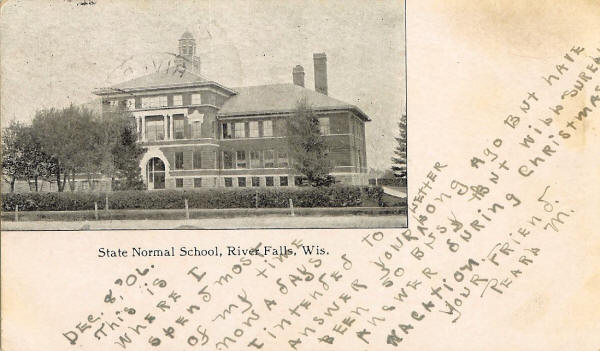 State Normal School, River Falls, Wis.
Dec. 8, '06.
This is
where I
spend most
of my time
now a days
I intended to
answer your letter
long ago but have
been so busy but will surely
answer during Christmas
vacation
Your friend
Pearl M.